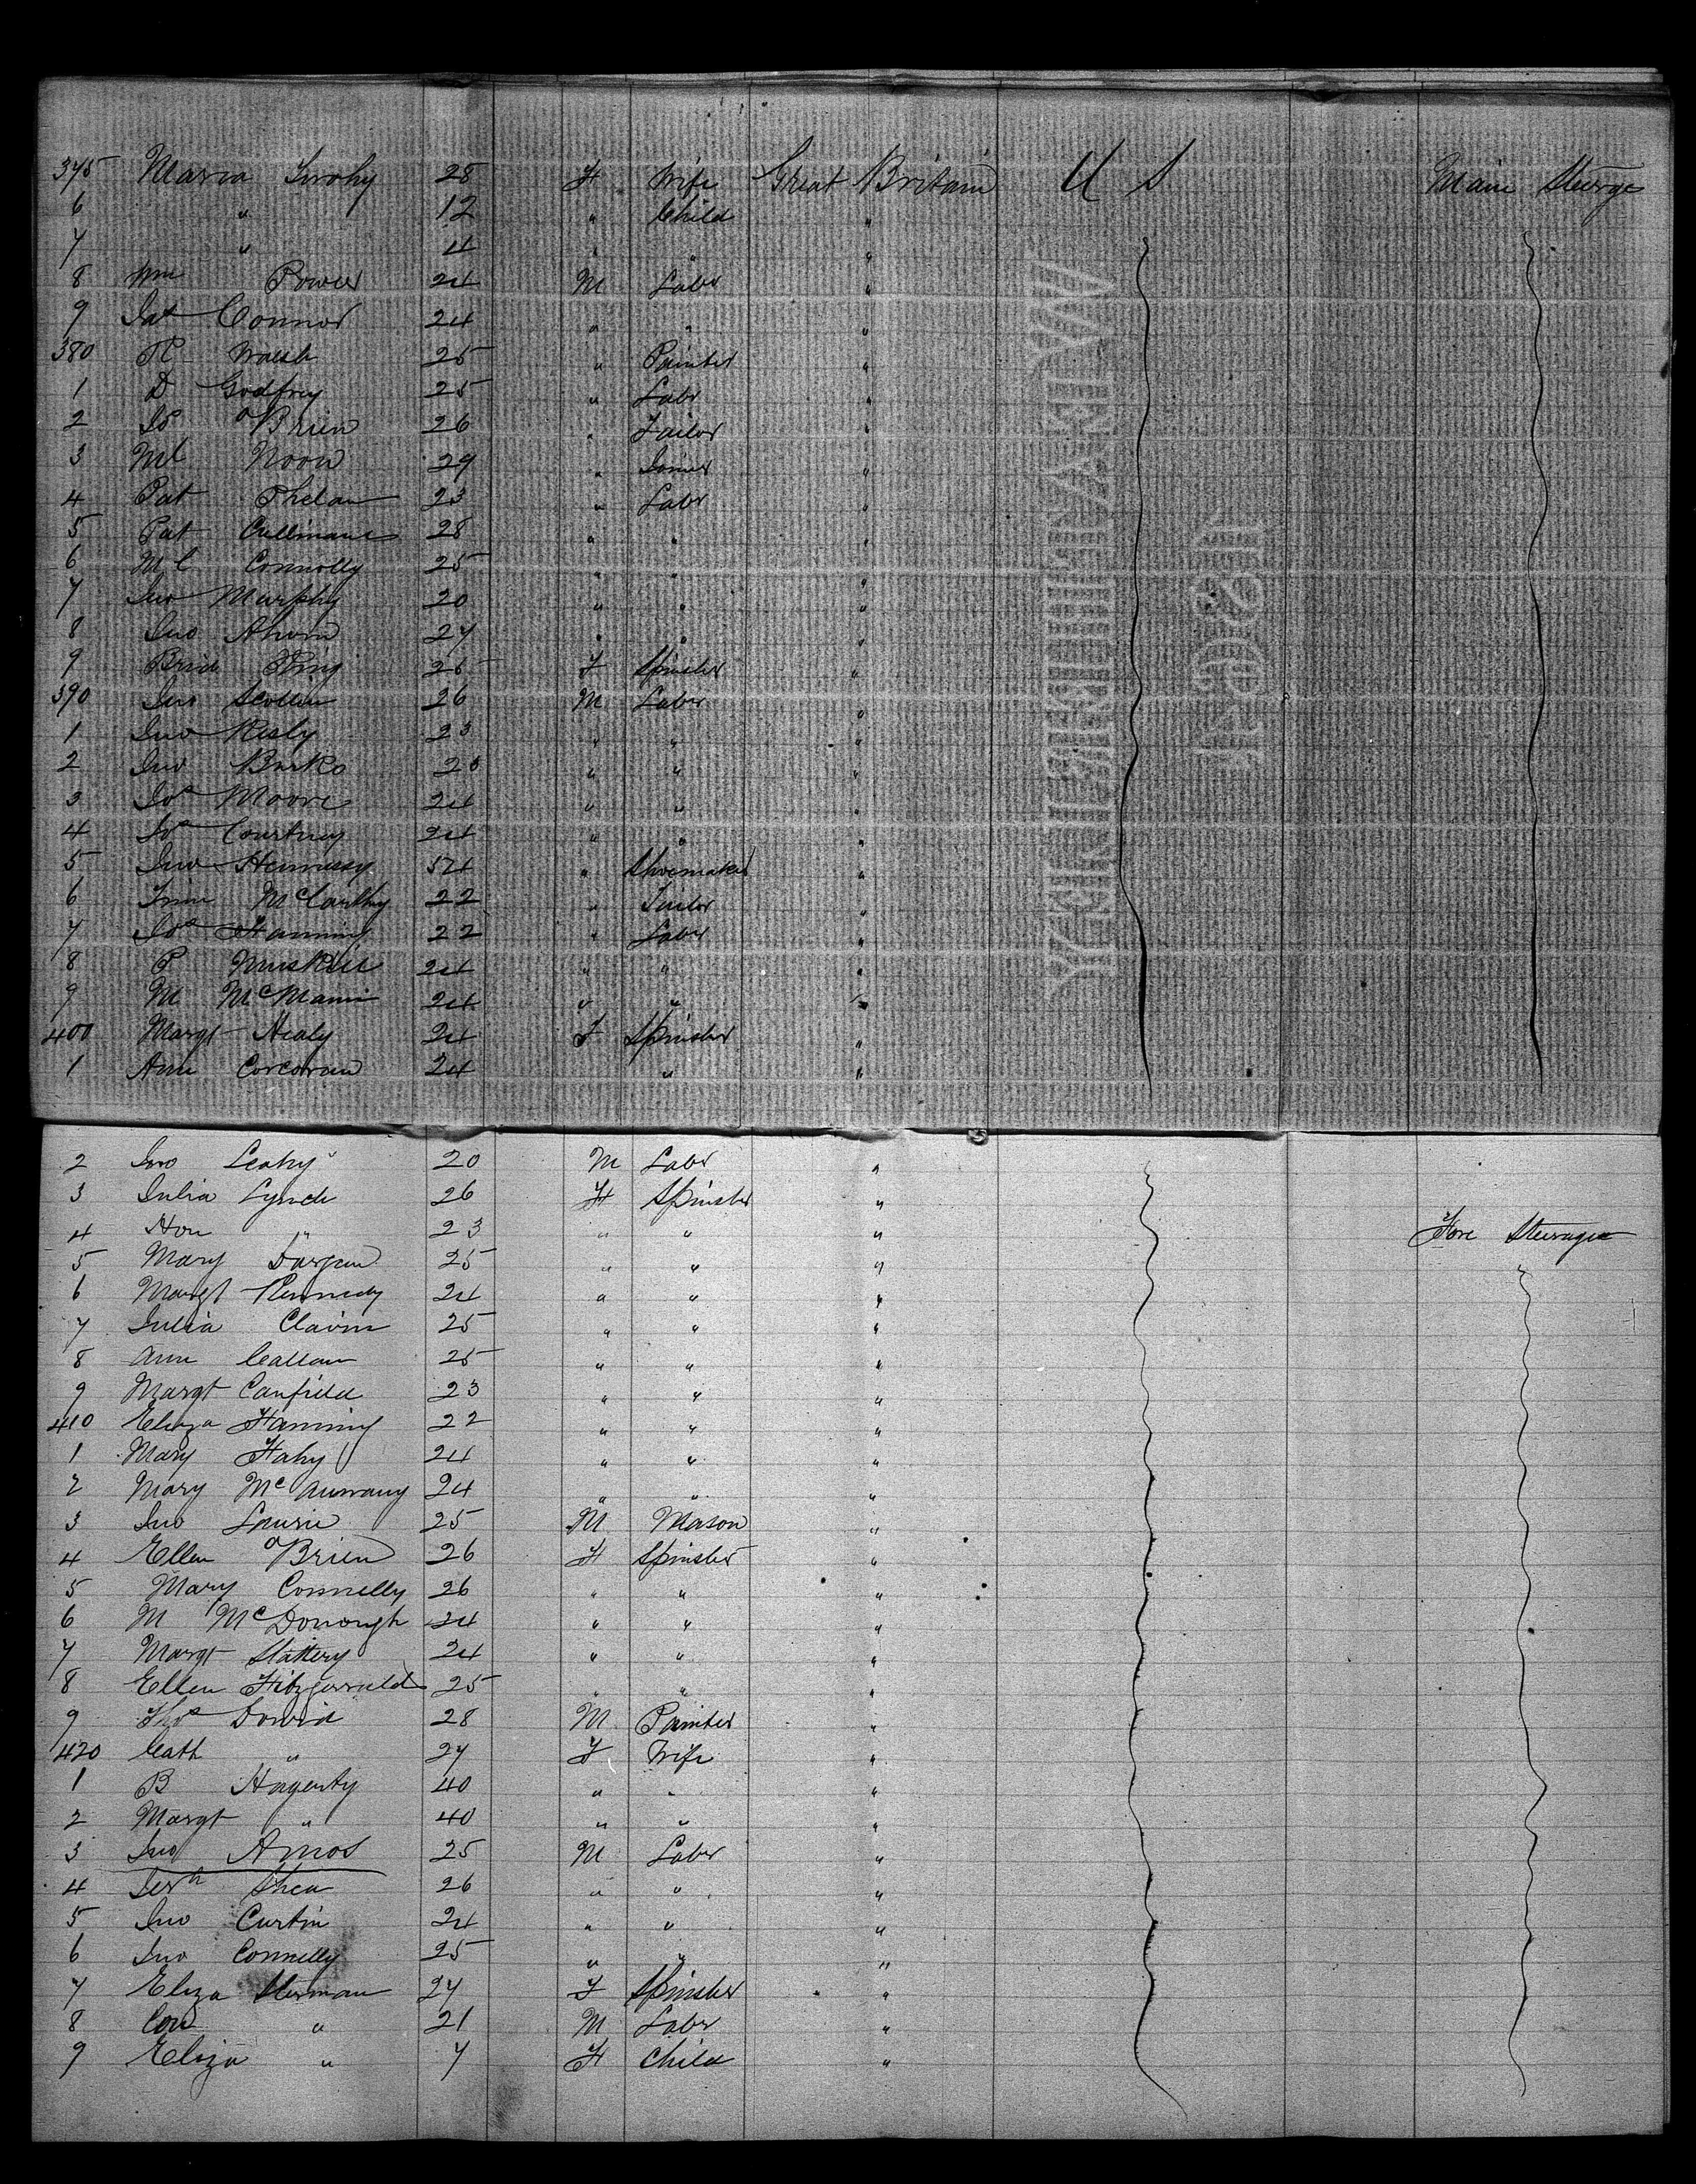 375 Maria 28 F Wife Great Britain U S Main Steerge
6 " 12 " Child "
7 " 4 " " "
8 Wm Power 24 M Labr "
9 Jas Connor 24 " " "
380 R Walsh 25 " Painter "
1 D Godfrey 25 " Labr "
2 Js OBrien 26 " Tailor "
3 Ml Noon 29 " Joiner "
4 Pat Phelan 23 " Labr "
5 Pat Cullinane 28 " " "
6 Ml Connolly 25 " " "
7 Jno Murphy 20 " " "
8 Jno Ahern 27 " " "
9 Brid King 25 F Spinster "
390 Jno Scollen 26 M Labr "
1 Jno 23 " " "
2 Jno Burke 20 " " "
3 Jos Moore 24 " " "
4 Jos Courtney 24 " " "
5 Jno Hennessy 54 " Shoemaker "
6 McCarthy 22 " Tailor "
7 Jos Hanning 22 " Labr "
8 P 24 " " "
9 M 24 " " "
400 Margt Healy 24 F Spinster "
1 Ann Corcoran 24 " "
WHITEHEAD & MORRIS
2 Jno Leahy 20 M Labr "
3 Julia Lynch 26 F Spinster "
4 Hon " 23 " " " Fore Steerage
5 Mary Dargan 25 " " "
6 Margt Kennedy 24 " " "
7 Julia Clavin 25 " " "
8 Ann Callan 25 " " "
9 Margt Canfield 23 " " "
410 Eliza Hanning 22 " " "
1 Mary Fahy 24 " " "
2 Mary 24 " " "
3 Jno 25 M Mason "
4 Ellen OBrien 26 F Spinster "
5 Mary Connelly 26 " " "
6 M McDonough 24 " " "
7 Margt Slattery 24 " " "
8 Ellen Fitzgerrald 25 " " "
9 Thos Dowid 28 M Painter "
420 Cath " 27 F Wife "
1 B Hagerty 40 " " "
2 Margt " 40 " " "
3 Jno Amos 25 M Labr "
4 Jerh Shea 26 " " "
5 Jno Curtin 24 " " "
6 Jno Connelly 25 " " "
7 Eliza 27 F Spinster "
8 Con " 21 M Labr "
9 Eliza " 7 F Child "